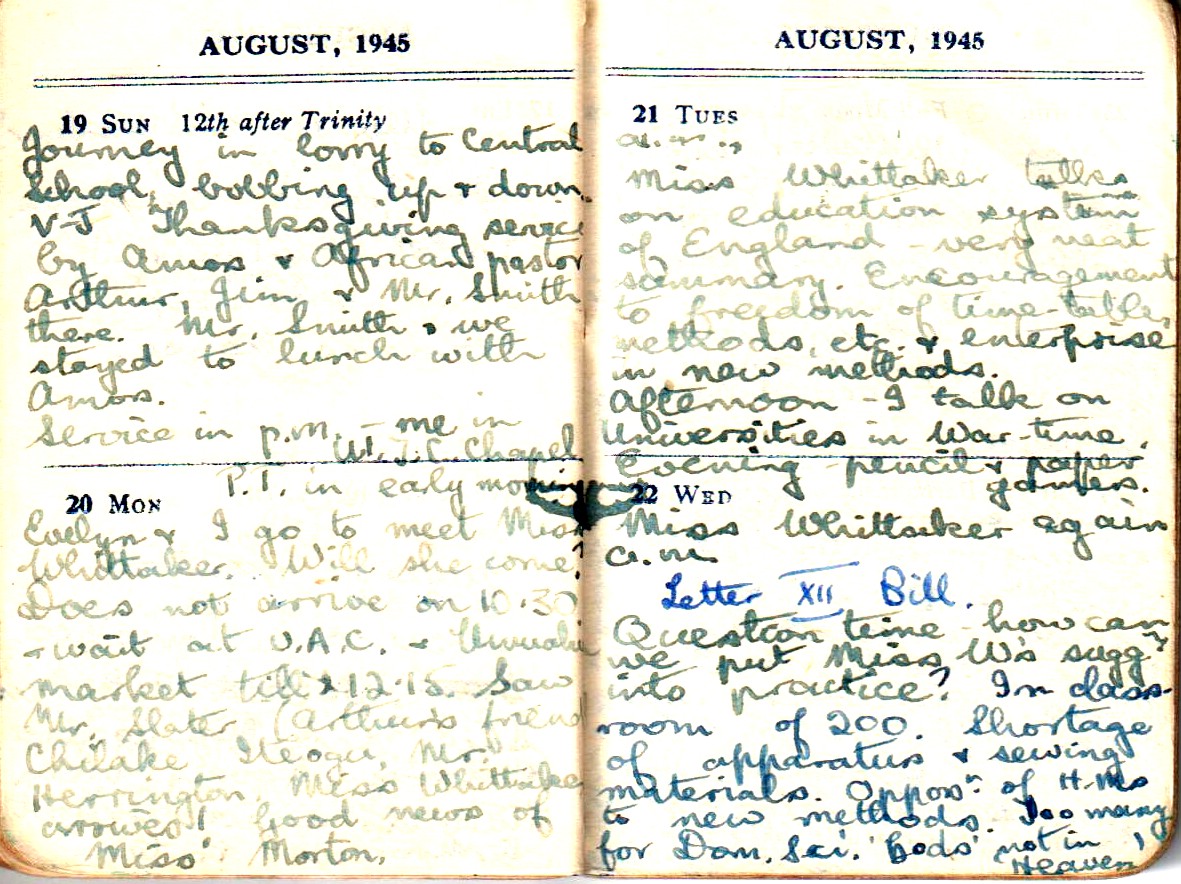 AUGUST, 1945
19 SUN 12th after Trinity
Journey in lorry to Central
School, bobbing up & down.
V-J Thanksgiving servic
by Amos & African pastor
Arthur, Jim & Mr. Smith
there. Mr. Smith & we
stayed to lunch with
Amos.
Service in p.m. - me in
W.T.C. Chapel
P.T. in early morning
20 MON
Evelyn & I go to meet Miss
Whittaker. Will she come?
Does not arrive on 10.30
- wait at U.A.C. & Umuahia
market till 12.15. Saw
Mr. Slater (Arthur's friend
Chilake Mr.
Herrington, Miss Whittaker
arrives! Good news of
Miss Morton.
AUGUST, 1945
21 TUES
a.m.,
Miss Whittaker talks
on education system
of England - very neat
summary. Encouragement
to freedom of time-table,
methods, etc. & enterprise
in new methods.
Afternoon - I talk on
Universities in War-time.
Evening - pencil & paper
games.
22 WED
Miss Whittaker again
a.m.
Letter XII Bill.
Question time - how can
we put Miss W's suggns
into practice? In class-
room of 200. Shortage
of apparatus & sewing
materials. Opposn of H.Ms
to new methods. Too many
for Dom. Sci. 'Gods' not in
Heaven!